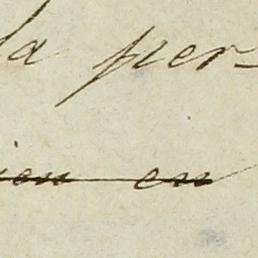 la per-
ien en